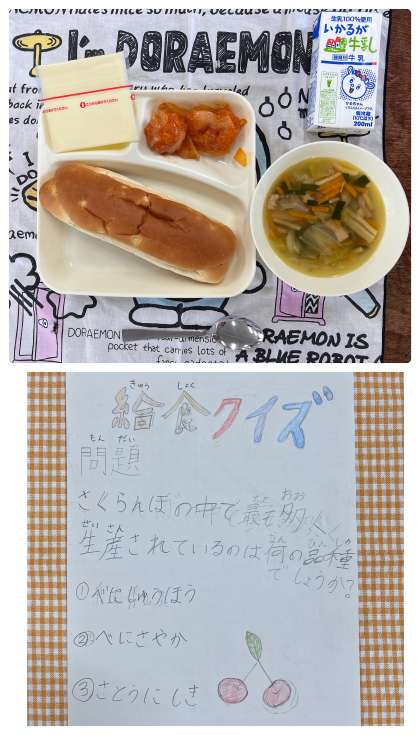 I'm DORAEMON
生乳100%使用
いかるが
牛乳
200ml
DORAEMON
pocket that carries lots of
DORAEMON IS
A BLUE ROBOT
きゅう しょく
給食クイズ
もん だい
問題
さくらんぼの中で最も多く
せい さん
生産されているのは何の品種
でしょうか?
①べにしゅうほう
②べにさやか
③さとうにしき